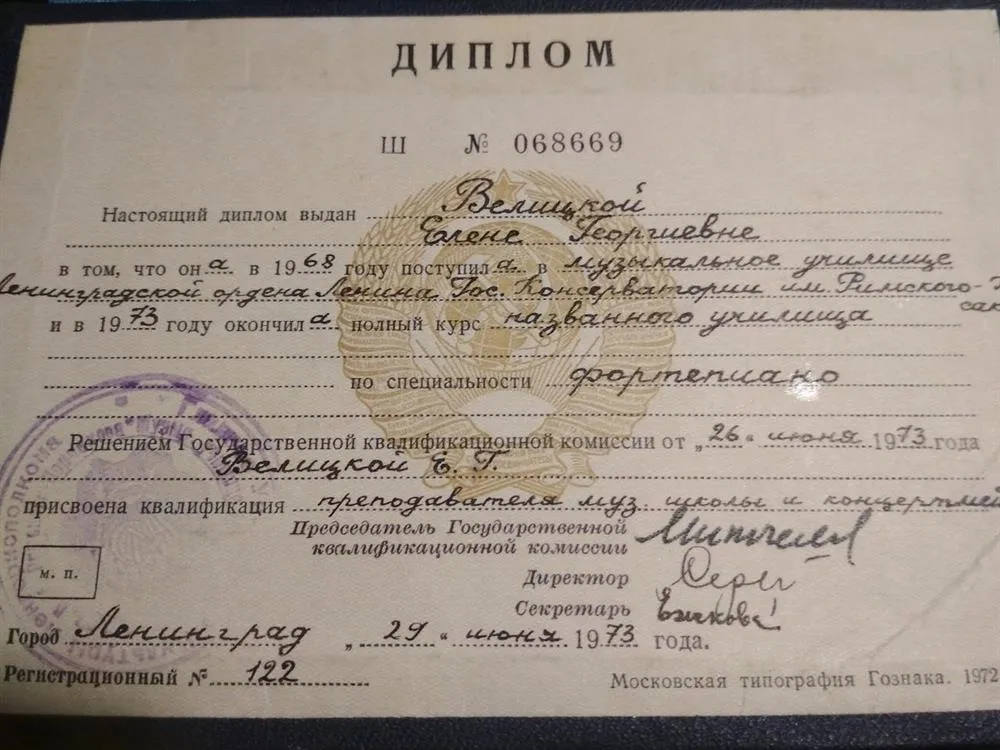 ДИПЛОМ
Ш № 068669
Настоящий диплом выдан Велицкой
Елене Георгиевне
в том, что она в 1968 году поступила в музыкальное училище
Ленинградской ордена Ленина Гос. Консерватории им. Римского-
сак
и в 1973 году окончила полный курс названного училища
по специальности фортепиано
Решением Государственной квалификационной комиссии от „26" июня 1973 года
Велицкой Е. Г.
присвоена квалификация преподавателя муз. школы и концертмей
Председатель Государственной
квалификационной комиссии
Директор
Секретарь
м. п.
Город Ленинград „29" июня 1973 года.
Регистрационный № 122
Московская типография Гознака. 1972